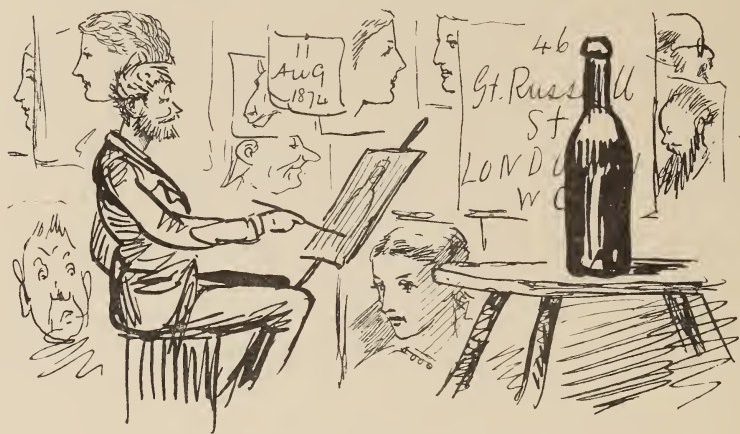 11
AUG
1874
46
Gt. Russell
St
LONDON
W C